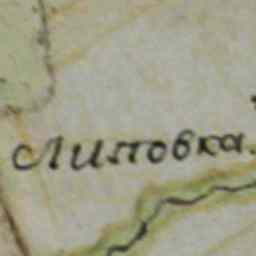 Липовка.